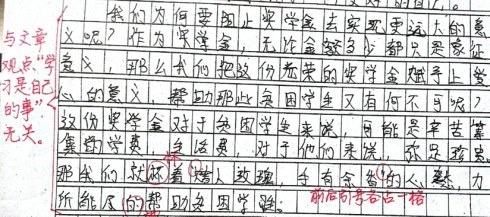 我们为何要阻止奖学金去实现更远大的意
义呢?作为奖学金,无论金额多少都只是象征
意义,那么我们把这份光荣的奖学金赋予上爱
心的意义,帮助那些贫困学生又有何不可呢?
这份奖学金对于贫困学生来说,可能是辛苦筹
集的学费,生活费,对于他们来说
那我们就 着“赠人玫瑰,手有余香”的人 ,力
所能尽的帮助贫困学
与文章
观点“学
习是自己
的事”
无关。
前后引号各占一格